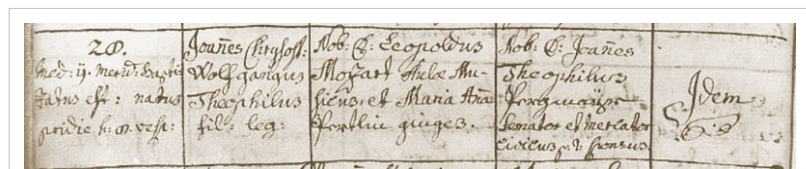 28.
med: ij. merid: bapti
zatus est: natus
pridie h. 8. vesp:
Joanes Chrysost:
Wolfgangus
Theophilus
fil: leg:
Nob: D: Leopoldus
Mozart Aulæ Mu-
sicus et Maria Anna
Pertlin giuges.
Nob: D: Joanes
Theophilus
Pergmayr
Senator et mercator
civicus p: t: sponsus
Idem